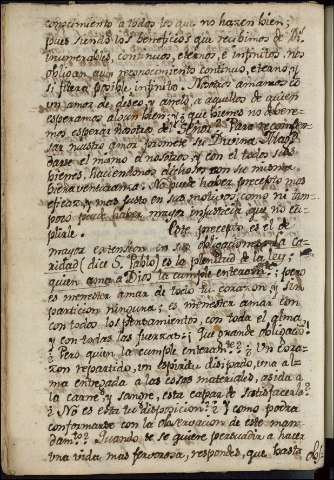 conocimiento a todos los que no hazen bien;
pues siendo los beneficios que recibimos de Ds.
inumerables, continuos, eternos, e infinitos, nos
obligan a un reconocimiento continuo, eterno, y
si fuera posible, infinito. Nosotros amamos co
un amor de deseo, y anelo a aquellos de quien
esperamos algun bien; y que bienes no devere-
mos esperar nosotros del Señor? Para recompen-
sar nuestro amor promete su Divina Magd.
darse el mismo a nosotros, y con el todos sus
bienes, haciendonos dichosos con su misma
bienaventuranza. No puede haver precepto mas
eficaz, y mas justo en sus motivos, como ni tam-
poco puede haber mayor injusticia que no cu-
plirle. Este precepto es el de
mayor extension en sus obligaciones. La ca-
ridad (dice S. Pablo) es la plenitud de la ley;
quien ama a Dios la cumple enteramte.; pero
es menester amar de todo el corazon, y sin
particion ninguna; es menester amar con
con todos los pensamientos, con toda el alma,
y con todas las fuerzas; Que grande obligacion!
Pero quien la cumple enteramte.? Un cora-
zon repartido, un espiritu disipado, una al-
ma entregada a las cosas materiales, asida a
la carne, y sangre, esta capaz de satisfacerlo?
No es esta tu disposicion? Y como podra
conformarse con la observacion de este man-
damto.? Quando se te quiere persuadir a hacer
una vida mas fervorosa, respondes, que basta